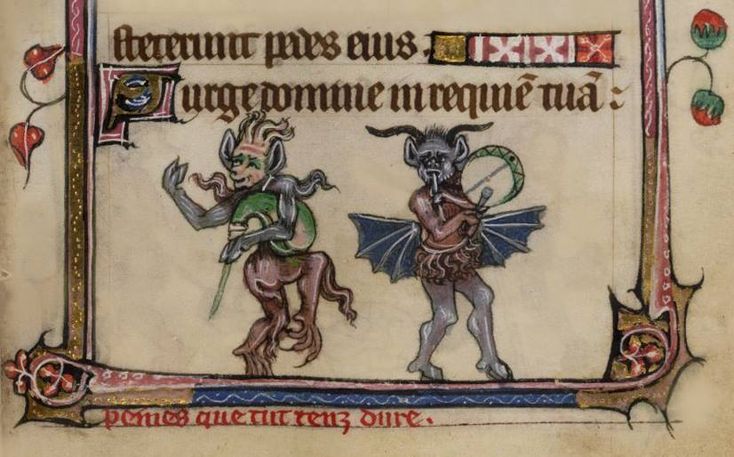 steterunt pedes eius.
Surge domine in requiē tuā :
penses que tut tenz dure.